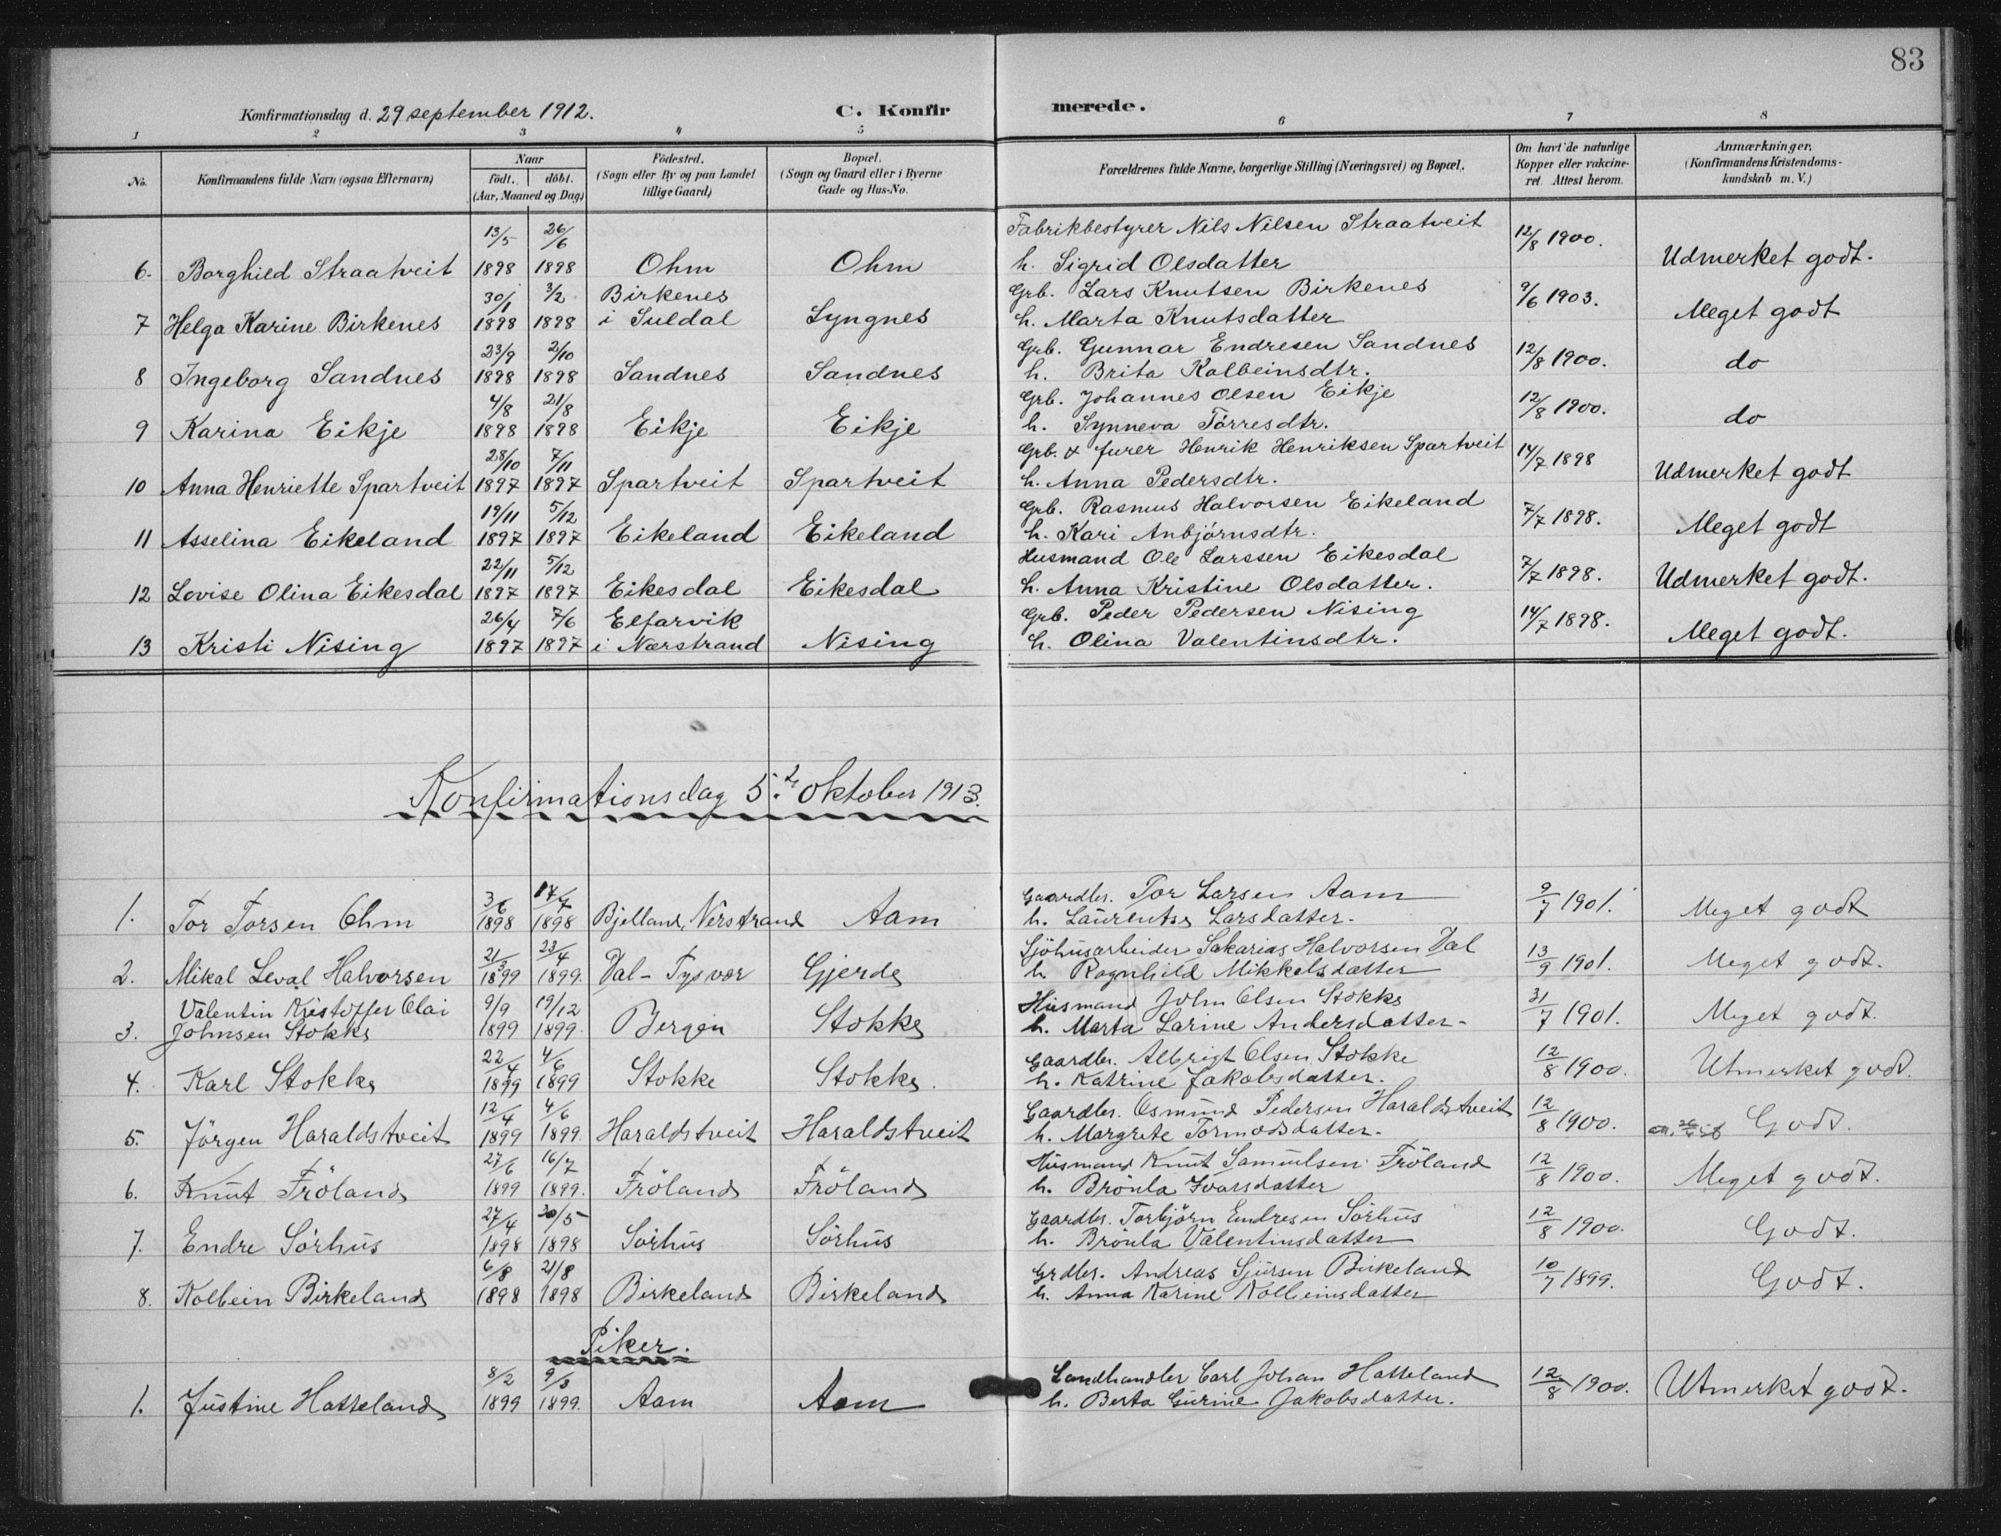 83
Konfirmationsdag d. 29 september 1912. C. Konfirmerede.
1 2 3 4 5 6 7 8
No. Konfirmandens fulde Navn (ogsaa Efternavn) Naar født. døbt. (Aar, Maaned og Dag) Fødested. (Sogn eller By og paa Landet tillige Gaard) Bopæl. (Sogn og Gaard eller i Byerne Gade og Hus-No. Forældrenes fulde Navne, borgerlige Stilling (Næringsvei) og Bopæl. Om havt de naturlige Kopper eller vakcineret. Attest herom. Anmærkninger. (Konfirmandens Kristendomskundskab m. V.)
13/5 26/6 Fabrikbestyrer Nils Nilsen Straatveit 12/8 1900.
6. Borghild Straatveit 1898 1898 Ohm Ohm h. Sigrid Olsdatter Udmerket godt.
30/1 3/2 Birkenes Grb. Lars Knutsen Birkenes 9/6 1903.
7 Helga Karine Birkenes 1898 1898 i Suldal Lyngnes h. Marta Knutsdatter Meget godt
23/9 2/10 Grb. Gunnar Endresen Sandnes 12/8 1900.
8 Ingeborg Sandnes 1898 1898 Sandnes Sandnes h. Brita Kolbeinsdtr. do
4/8 21/8 Grb. Johannes Olsen Eikje 12/8 1900.
9 Karina Eikje 1898 1898 Eikje Eikje h. Synneva Tørresdtr. do
28/10 7/11 Grb. & furer Henrik Henriksen Spartveit 14/7 1898
10 Anna Henriette Spartveit 1897 1897 Spartveit Spartveit h. Anna Pedersdtr. Udmerket godt
19/11 5/12 Grb. Rasmus Halvorsen Eikeland 7/7 1898.
11 Asselina Eikeland 1897 1897 Eikeland Eikeland h. Kari Anbjørnsdtr. Meget godt
22/11 5/12 Husmand Ole Larssen Eikesdal 7/7 1898.
12 Lovise Olina Eikesdal 1897 1897 Eikesdal Eikesdal h. Anna Kristine Olsdatter. Udmerket godt.
26/4 7/6 Elfarvik Grb. Peder Pedersen Nising 14/7 1898.
13 Kristi Nising 1897 1897 i Nærstrand Nising h. Olina Valentinsdtr. Meget godt.
Konfirmationsdag 5. oktober 1913.
3/6 17/7 Gaardbr. Tor Larsen Aam 9/7 1901.
1. Tor Torsen Ohm 1898 1898 Bjelland, Nerstrand Aam h. Laurentse Larsdatter. Meget godt
21/3 23/4 Sjøhusarbeider Sakarias Halvorsen Dal 13/9 1901.
2. Mikal Leval Halvorsen 1899 1899. Dal - Tysvær Gjerde h. Ragnhild Mikkelsdatter Meget godt.
Valentin Kristoffer Olai 9/9 19/12 Husmand John Olsen Stokke 31/7 1901.
3. Johnsen Stokke 1899 1899. Bergen Stokke h. Marta Larine Andersdatter. Meget godt.
22/4 4/6 Gaardbr. Albrigt Olsen Stokke 12/8 1900.
4. Karl Stokke 1899 1899 Stokke Stokke. h. Katrine Jakobsdatter. Utmerket godt.
12/4 4/6 Gaardbr. Osmund Pedersen Haraldstveit 12/8 1900.
5. Jørgen Haraldstveit 1899 1899. Haraldstveit Haraldstveit h. Margrete Tormodsdatter. Godt.
27/6 16/7 Husmand Knut Samuelsen Frøland 12/8 1900.
6. Knut Frøland 1899 1899. Frøland Frøland h. Brønla Ivarsdatter Meget godt.
27/4 30/5 Gaardbr. Torbjørn Endresen Sørhus 12/8 1900.
7. Endre Sørhus 1898 1898 Sørhus Sørhus h. Brønla Valentinsdatter Godt.
6/8 21/8 Grdbr. Andreas Sjursen Birkeland 10/7 1899.
8. Kolbein Birkeland 1898 1898 Birkeland Birkeland h. Anna Karine Kolbeinsdatter Godt.
Piker.
8/2 9/3 Landhandler Carl Johan Hatteland 12/8 1900.
1. Justine Hatteland 1899 1899. Aam Aam h. Berta Gurine Jakobsdatter. Utmerket godt.